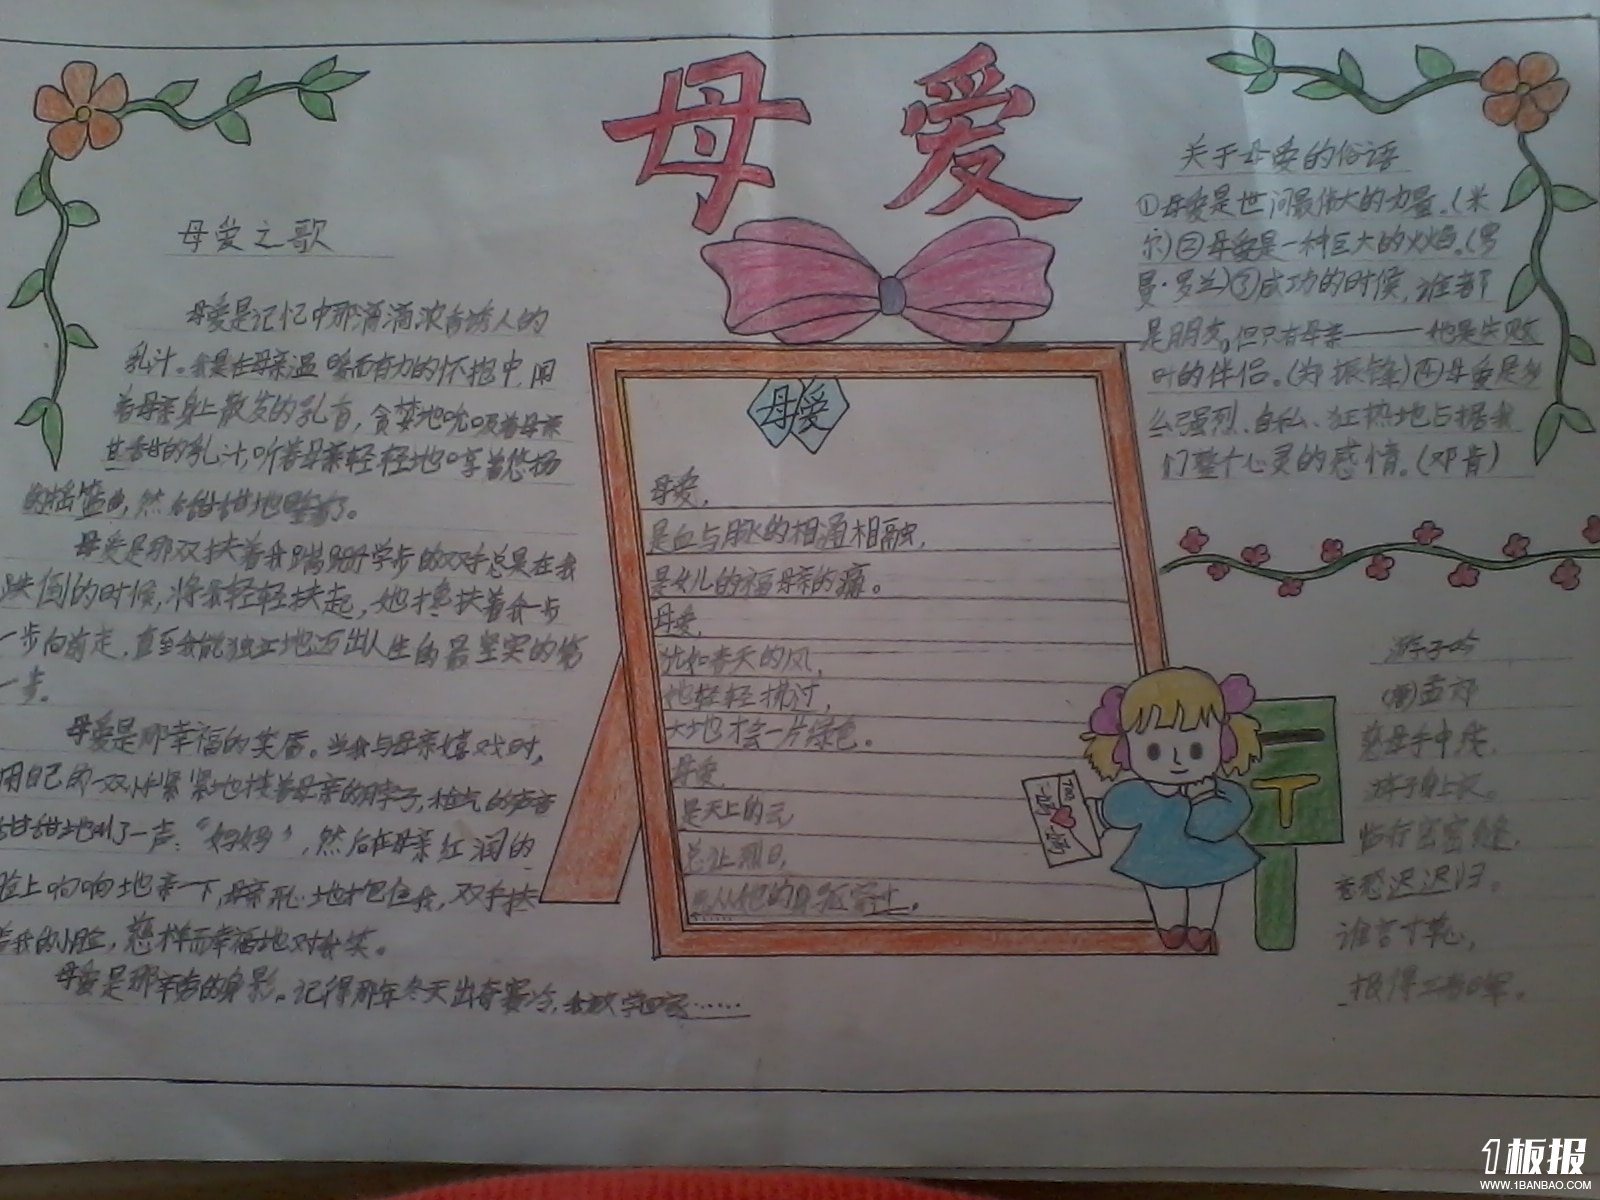 母爱
母爱之歌
母爱是记忆中那滴滴浓香诱人的
乳汁。我是在母亲温暖而有力的怀抱中,闻
着母亲身上散发的乳香,贪婪地吮吸着母亲
甘香的乳汁,听着母亲轻轻地哼着悠扬
的摇篮曲,然后甜甜地睡着了。
母爱是那双扶着我蹒跚学步的双手总是在我
跌倒的时候,将我轻轻扶起,她搀扶着我一步
一步向前走,直至我能独立地迈出人生的最坚实的第
一步。
母爱是那幸福的笑唇。当我与母亲嬉戏时,
用自己的一双小手紧紧地搂着母亲的脖子,稚气的声音
甜甜地叫了一声:“妈妈”,然后在母亲红润的
脸上响响地亲一下,母亲开心地抱住我,双手扶
着我的小脸,慈祥而幸福地对我笑。
母爱是那辛劳的身影。记得那年冬天出奇寒冷,我放学回家……
母爱
母爱,
是血与脉的相涌相融,
是女儿的福母亲的痛。
母爱,
犹如春天的风,
她轻轻拂过,
大地才会一片绿色。
母爱,
是天上的云
总让烈日,
先从她的身躯穿过。
关于母爱的俗语
①母爱是世间最伟大的力量。(米
尔)②母爱是一种巨大的火焰。(罗
曼·罗兰)③成功的时候,谁都
是朋友。但只有母亲——她是失败
时的伴侣。(郑振铎)④母爱是多
么强烈、自私、狂热地占据我
们整个心灵的感情。(邓肯)
游子吟
(唐)孟郊
慈母手中线,
游子身上衣。
临行密密缝,
意恐迟迟归。
谁言寸草心,
报得三春晖。
1板报
WWW.1BANBAO.COM